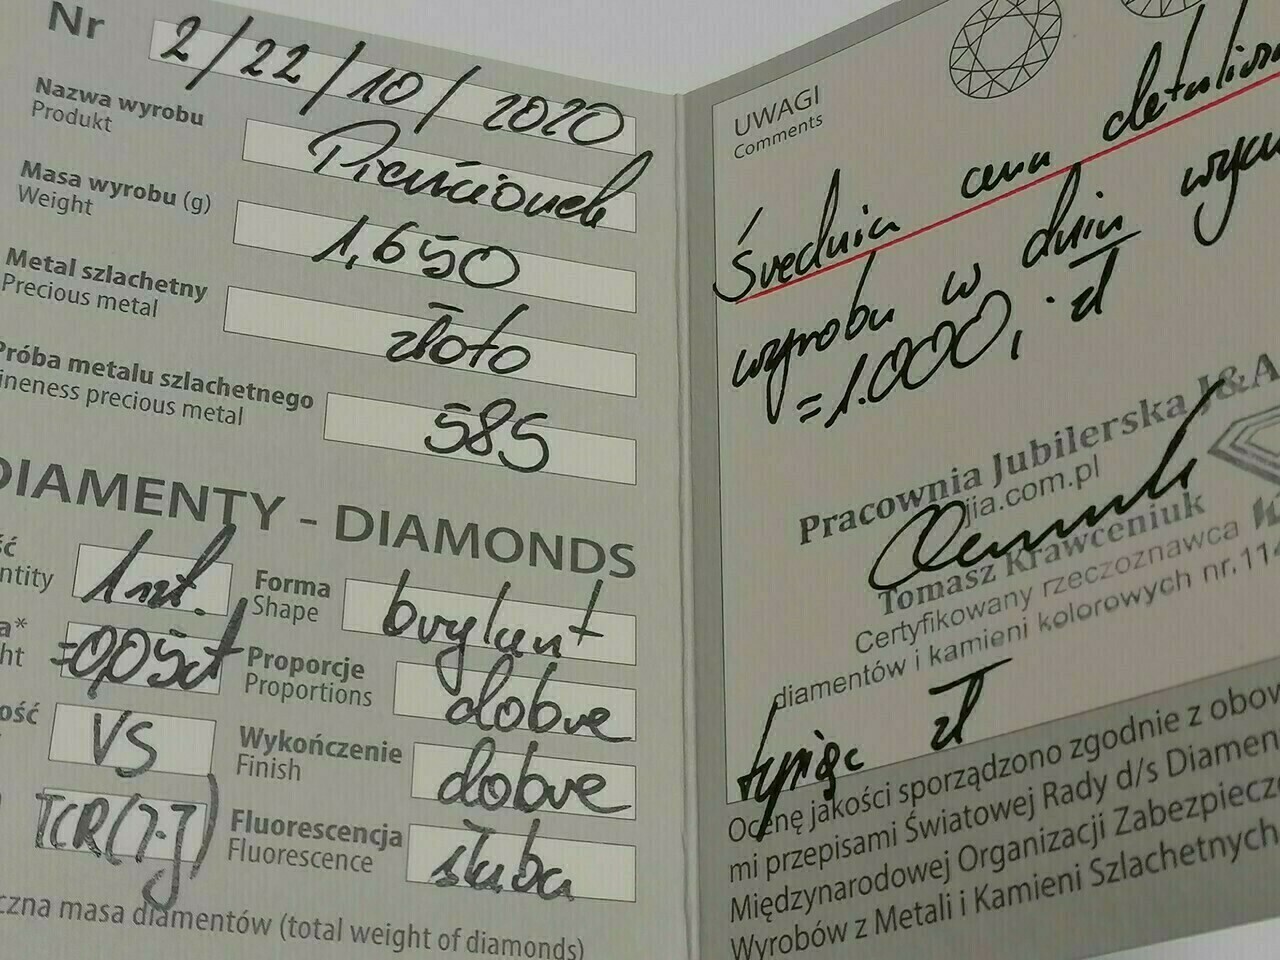 Nr 2/22/10/2020
Nazwa wyrobu Pierścionek
Produkt
Masa wyrobu (g) 1,650
Weight
Metal szlachetny złoto
Precious metal
Próba metalu szlachetnego 585
ineness precious metal
DIAMENTY - DIAMONDS
ść 1 szt. Forma brylant
ntity Shape
a* =0,05ct Proporcje dobre
ht Proportions
ość VS Wykończenie dobre
Finish
TCR(I-J) Fluorescencja słaba
Fluorescence
czna masa diamentów (total weight of diamonds)
UWAGI
Comments
Średnia cena
wyrobu w dniu
=1.000,- zł
Pracownia Jubilerska J&A
jia.com.pl
Tomasz Krawceniuk
Certyfikowany rzeczoznawca
diamentów i kamieni kolorowych nr.114
tysiąc zł
Ocenę jakości sporządzono zgodnie z obow
mi przepisami Światowej Rady d/s Diamen
Międzynarodowej Organizacji Zabezpiecze
Wyrobów z Metali i Kamieni Szlachetnych